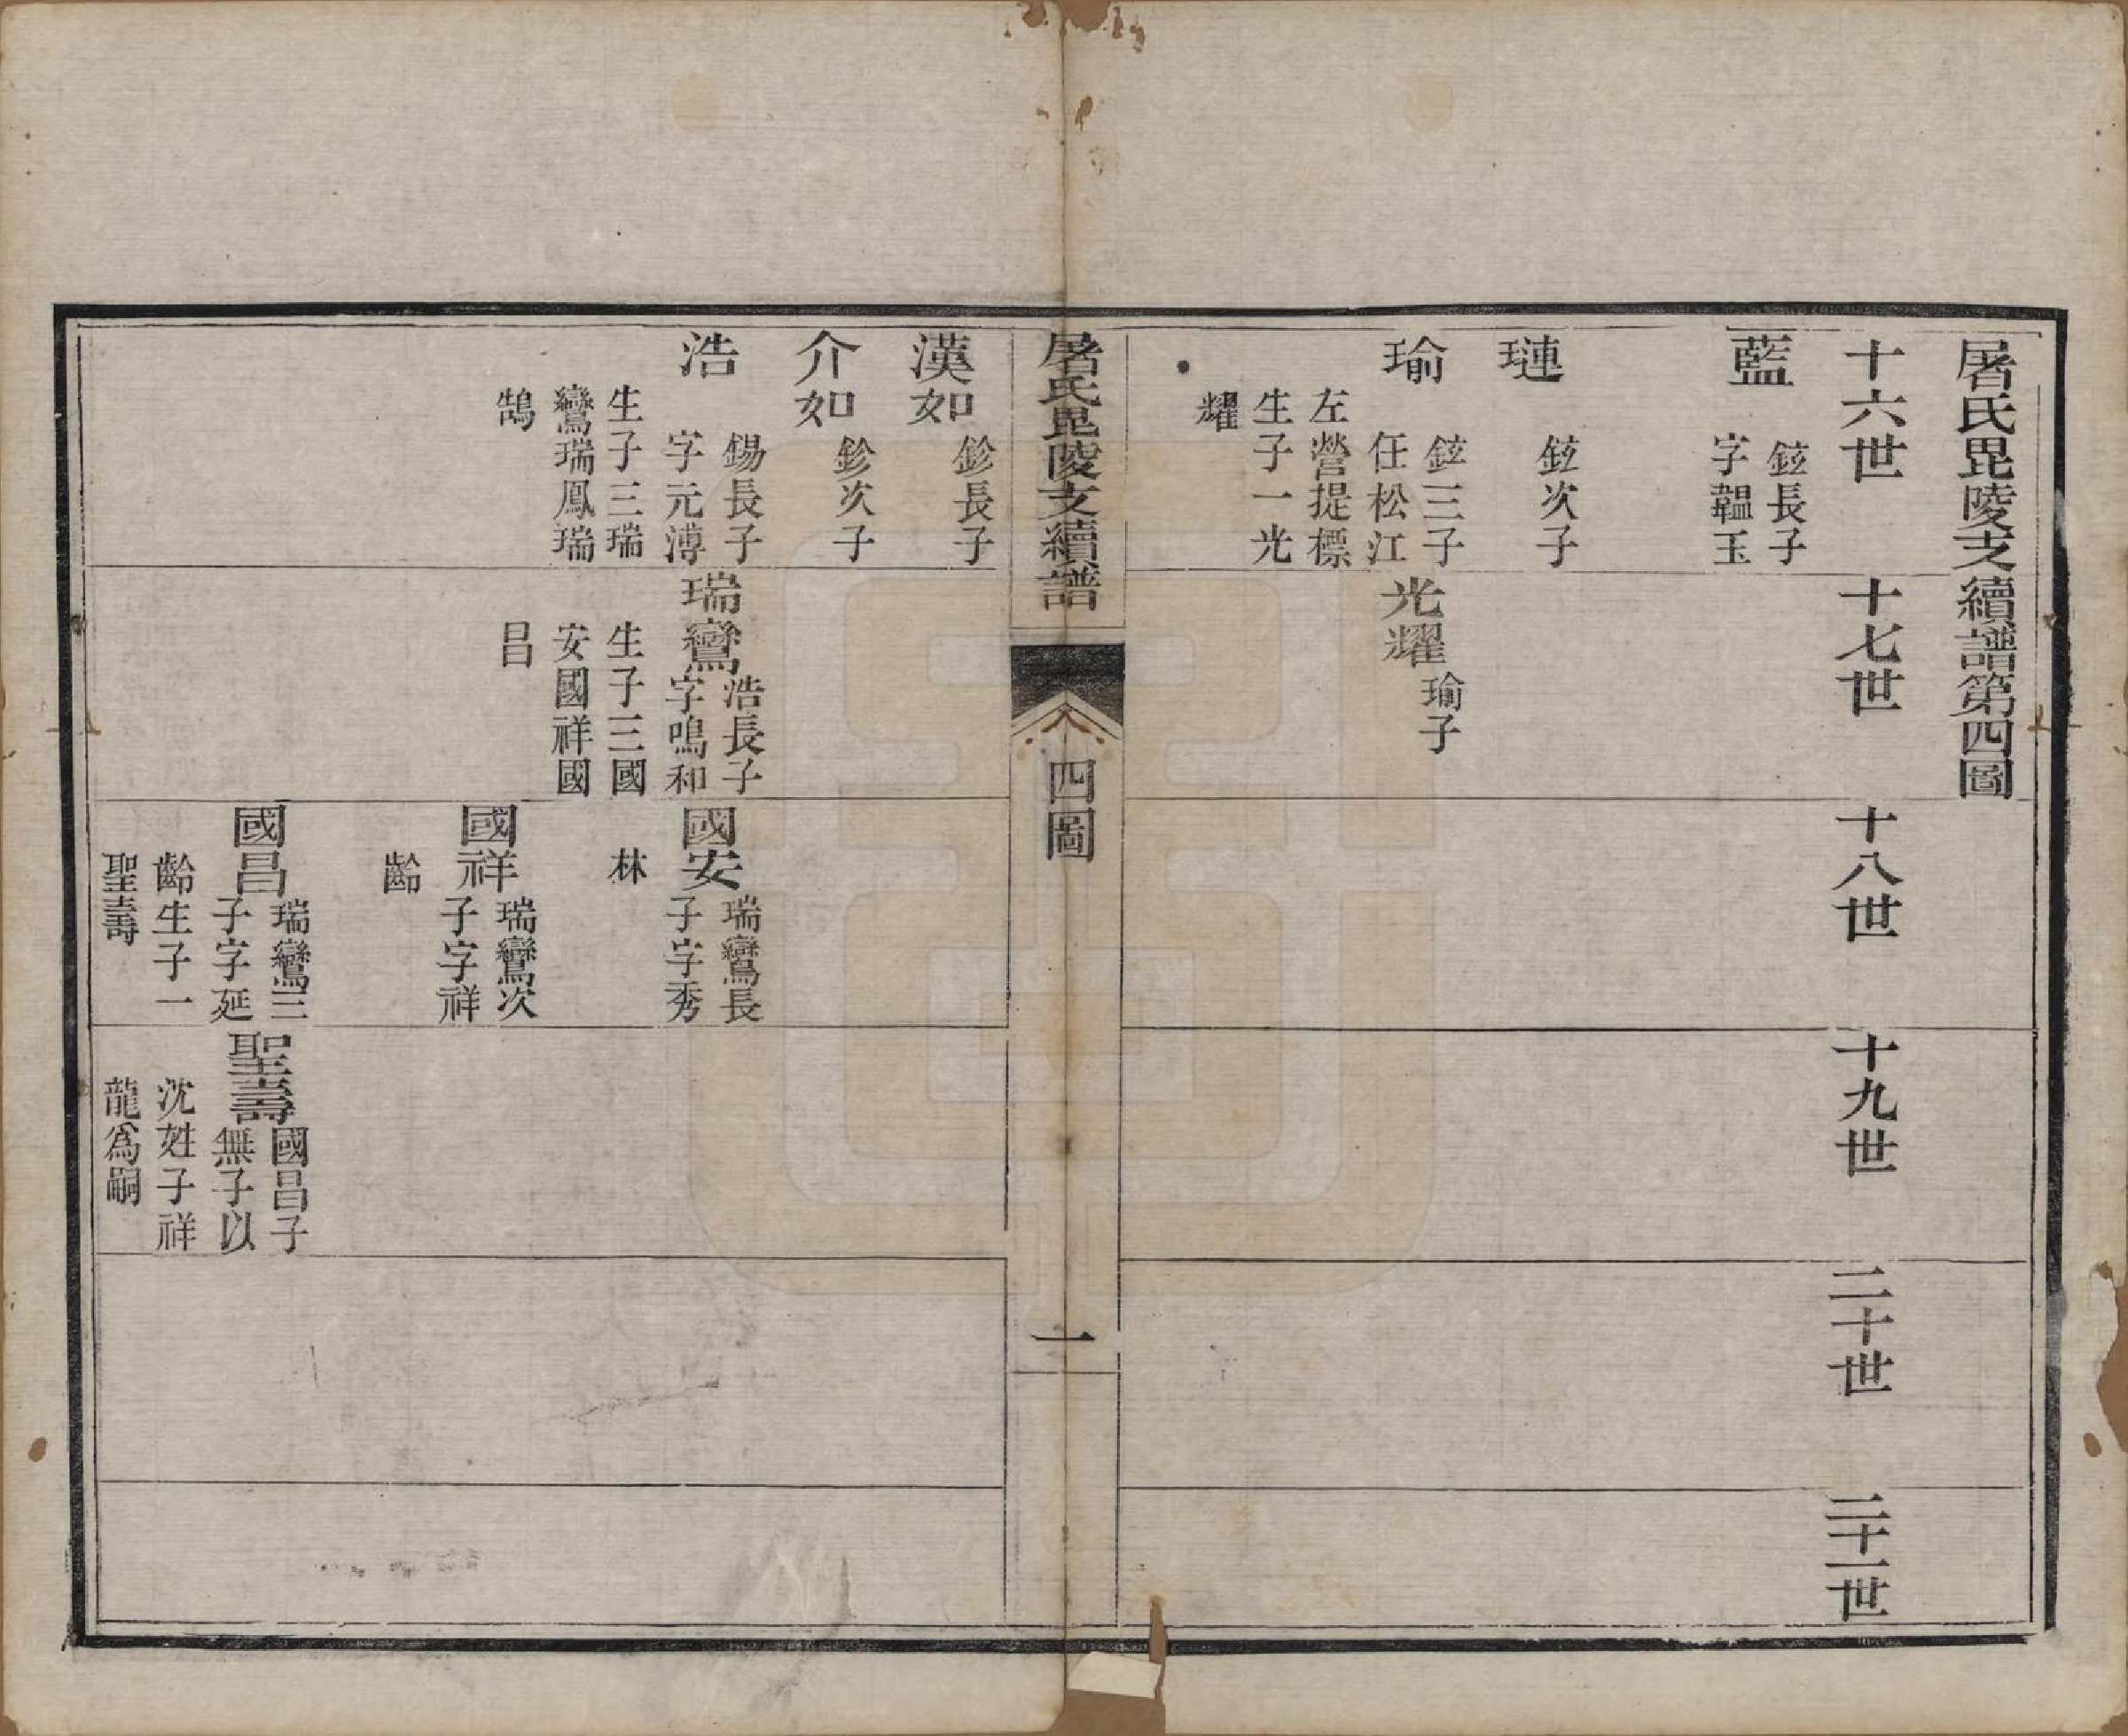 屠氏毘陵支續譜第四圖
十六世
十七世
十八世
十九世
二十世
二十一世
藍
鉉長子
字韞玉
璉
鉉次子
瑜
鉉三子
任松江
左營提標
生子一光
耀
光耀
瑜子
屠氏毘陵支續譜
四圖
一
漢如
鉁長子
介如
鉁次子
浩
錫長子
字元溥
生子三瑞
鸞瑞鳳瑞
鵠
瑞鸞
浩長子
字鳴和
生子三國
安國祥國
昌
國安
瑞鸞長
子字秀
林
國祥
瑞鸞次
子字祥
齡
國昌
瑞鸞三
子字延
齡生子一
聖壽
聖壽
國昌子
無子以
沈姓子祥
龍爲嗣